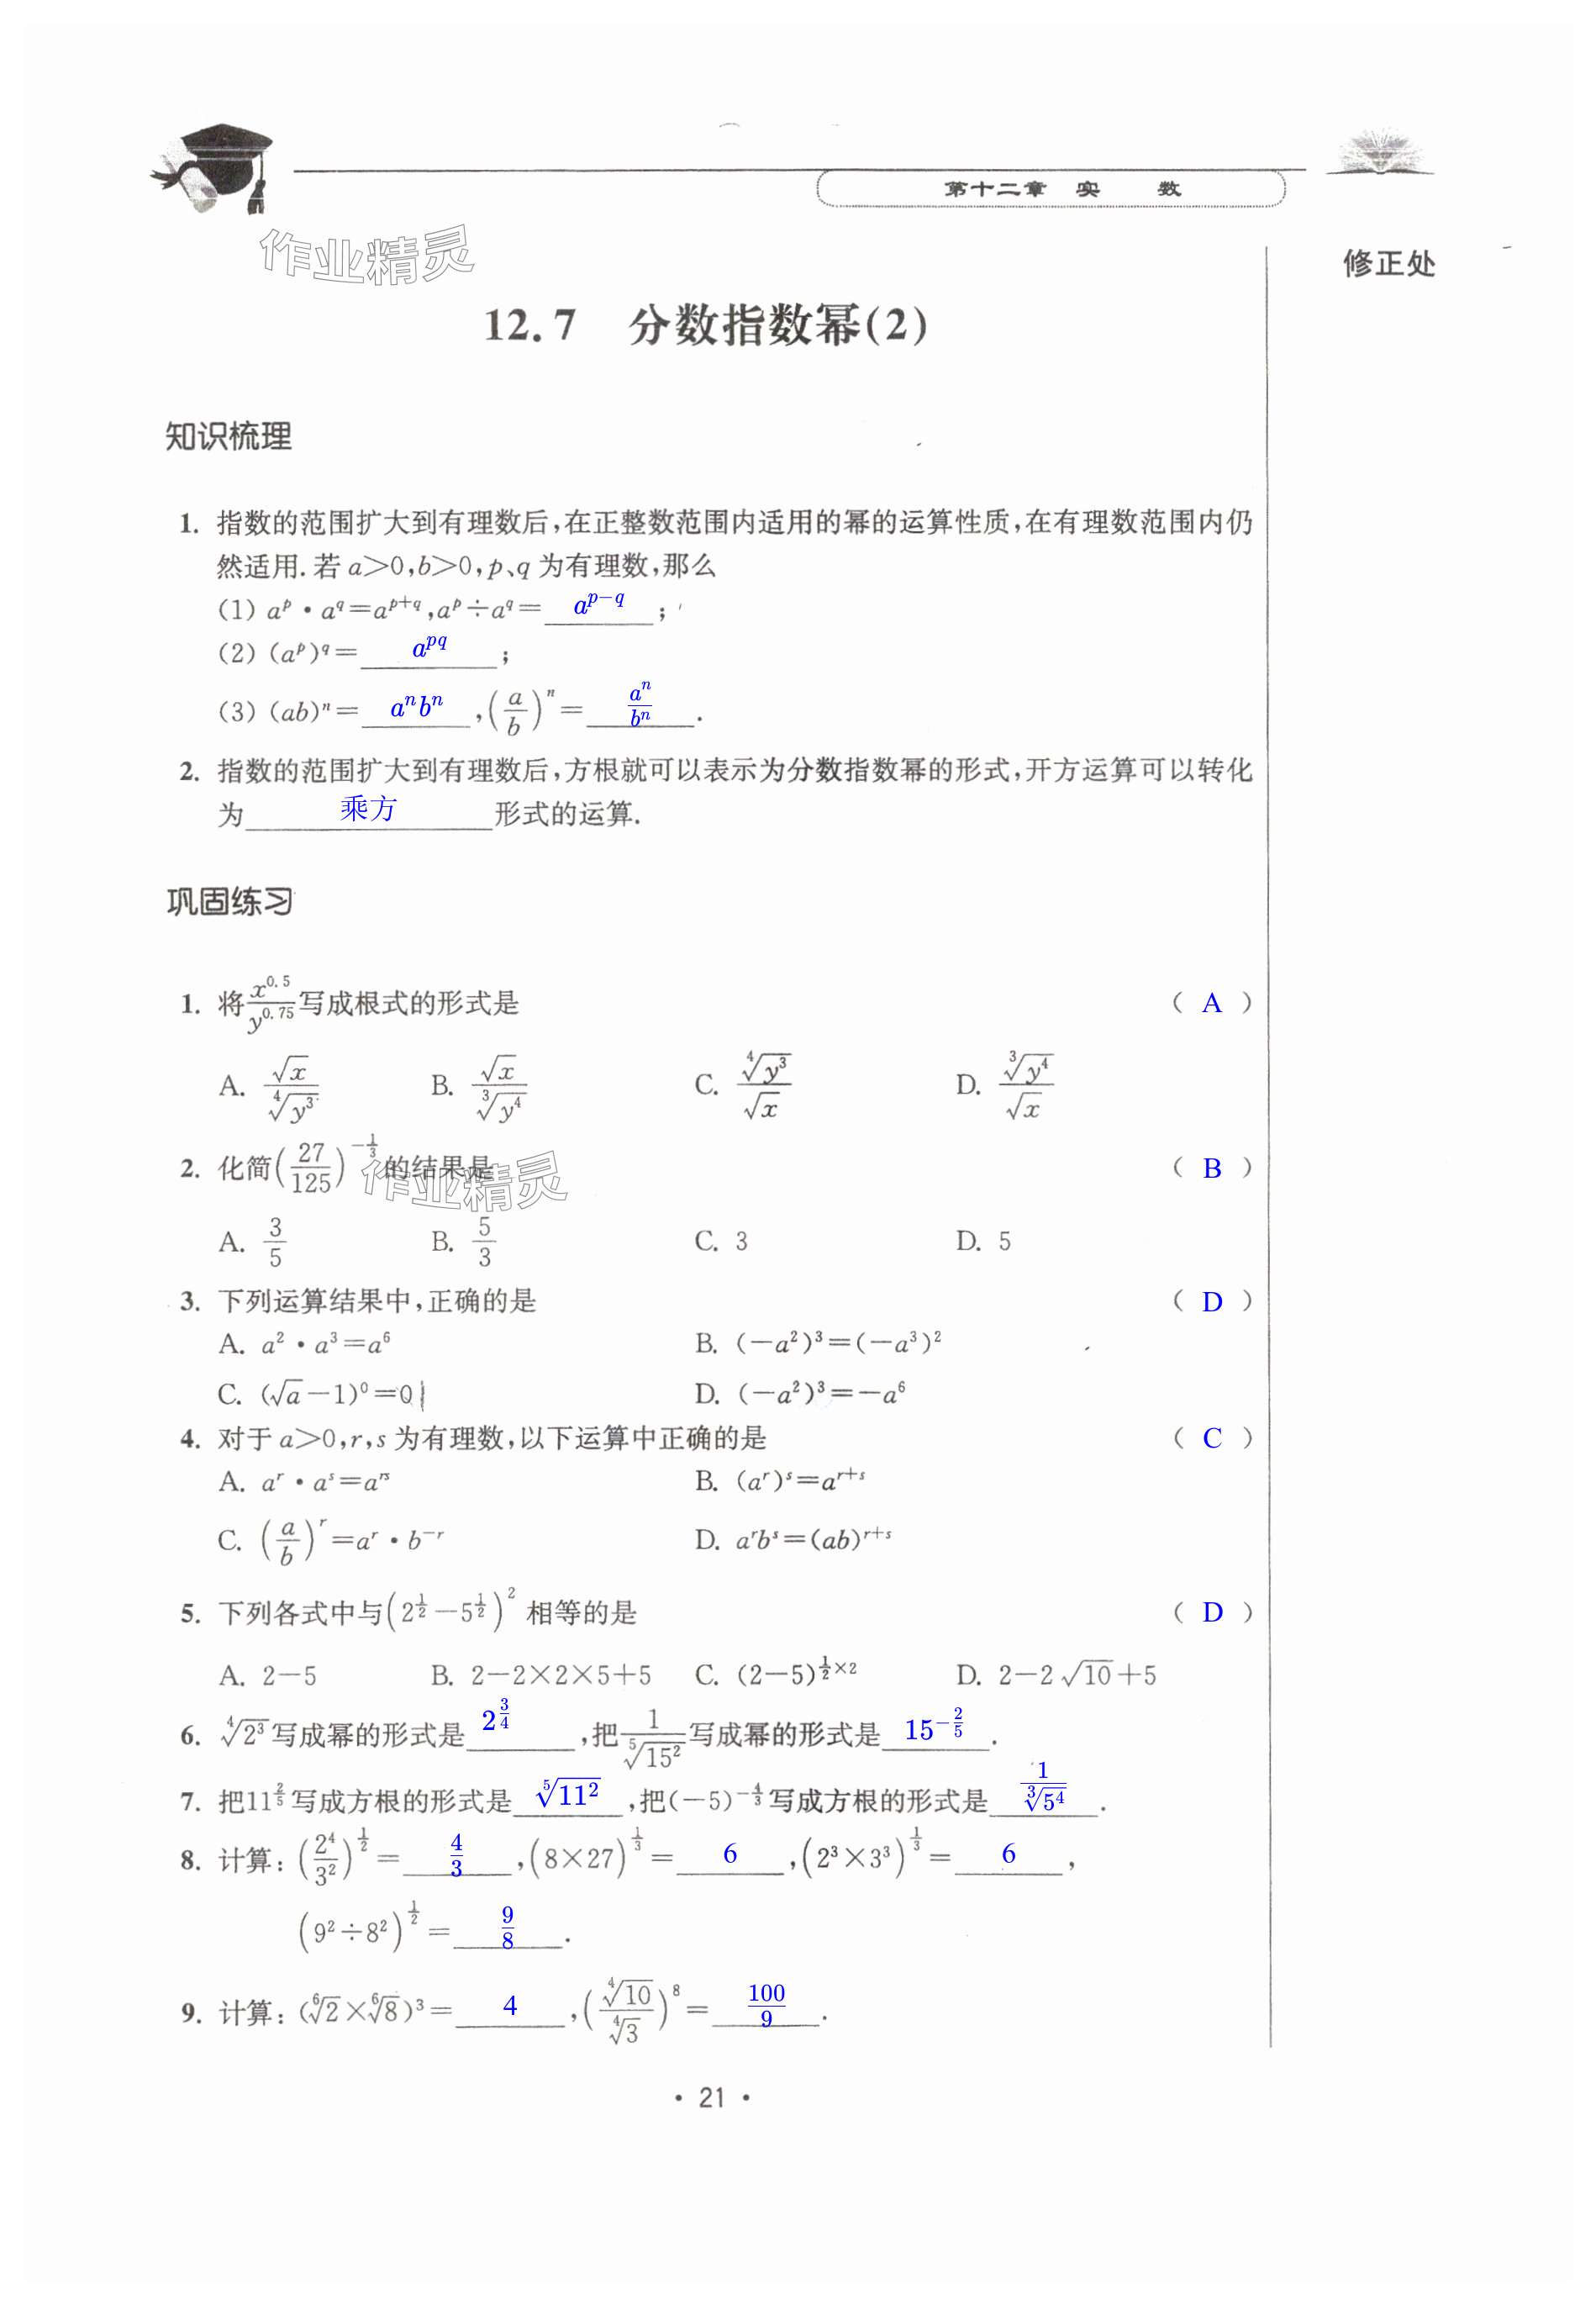 第十二章 实 数
作业精灵
修正处
12.7 分数指数幂(2)
知识梳理
1. 指数的范围扩大到有理数后,在正整数范围内适用的幂的运算性质,在有理数范围内仍
然适用.若 a>0,b>0,p、q 为有理数,那么
(1) a^p·a^q=a^{p+q},a^p÷a^q= a^{p-q} ;
(2) (a^p)^q= a^{pq} ;
(3) (ab)^n= a^n b^n ,(a/b)^n= a^n/b^n .
2. 指数的范围扩大到有理数后,方根就可以表示为分数指数幂的形式,开方运算可以转化
为 乘方 形式的运算.
巩固练习
1. 将 x^{0.5}/y^{0.75} 写成根式的形式是 ( A )
A. √x/⁴√(y³) B. √x/³√(y⁴) C. ⁴√(y³)/√x D. ³√(y⁴)/√x
2. 化简(27/125)^{-1/3}的结果是 ( B )
作业精灵
A. 3/5 B. 5/3 C. 3 D. 5
3. 下列运算结果中,正确的是 ( D )
A. a²·a³=a⁶ B. (-a²)³=(-a³)²
C. (√a-1)⁰=0 D. (-a²)³=-a⁶
4. 对于 a>0,r,s 为有理数,以下运算中正确的是 ( C )
A. a^r·a^s=a^{rs} B. (a^r)^s=a^{r+s}
C. (a/b)^r=a^r·b^{-r} D. a^r b^s=(ab)^{r+s}
5. 下列各式中与(2^{1/2}-5^{1/2})² 相等的是 ( D )
A. 2-5 B. 2-2×2×5+5 C. (2-5)^{1/2×2} D. 2-2√10+5
6. ⁴√(2³)写成幂的形式是 2^{3/4} ,把 1/⁵√(15²) 写成幂的形式是 15^{-2/5} .
7. 把11^{2/5}写成方根的形式是 ⁵√(11²) ,把(-5)^{-4/3}写成方根的形式是 1/³√(5⁴) .
8. 计算: (2⁴/3²)^{1/2}= 4/3 ,(8×27)^{1/3}= 6 ,(2³×3³)^{1/3}= 6 ,
(9²÷8²)^{1/2}= 9/8 .
9. 计算: (⁶√2×⁶√8)³= 4 ,(⁴√10/⁴√3)⁸= 100/9 .
· 21 ·